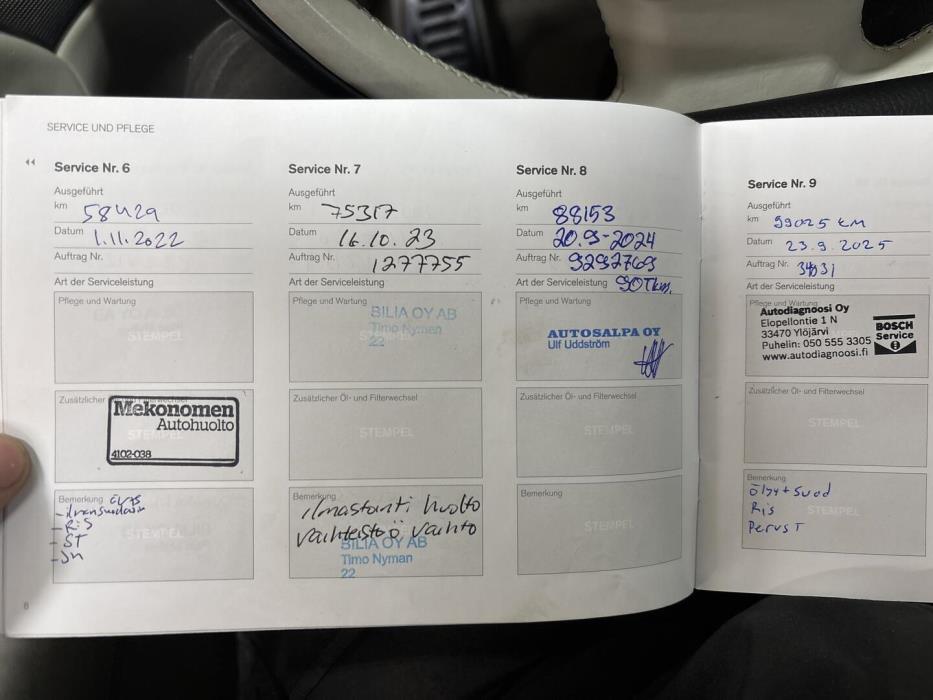 SERVICE UND PFLEGE
Service Nr. 6
Ausgeführt
km 58429
Datum 1.11.2022
Auftrag Nr.
Art der Serviceleistung
Pflege und Wartung
STEMPEL
Zusätzlicher
Mekonomen
Autohuolto
STEMPEL
4102-038
Bemerkung
- RiS
- ST
STEMPEL
8
Service Nr. 7
Ausgeführt
km 75317
Datum 16.10.23
Auftrag Nr. 1277755
Art der Serviceleistung
Pflege und Wartung
BILIA OY AB
Timo Nyman
22
Zusätzlicher Öl- und Filterwechsel
STEMPEL
Bemerkung
ilmastointi huolto
vaihteistoö vaihto
BILIA OY AB
Timo Nyman
22
Service Nr. 8
Ausgeführt
km 88153
Datum 20.9-2024
Auftrag Nr. 9292769
Art der Serviceleistung 90Tkm.
Pflege und Wartung
AUTOSALPA OY
Ulf Uddström
Zusätzlicher Öl- und Filterwechsel
STEMPEL
Bemerkung
STEMPEL
Service Nr. 9
Ausgeführt
km 99025 km
Datum 23.9.2025
Auftrag Nr.
Art der Serviceleistung
Pflege und Wartung
Autodiagnoosi Oy
Elopellontie 1 N
33470 Ylöjärvi
Puhelin: 050 555 3305
www.autodiagnoosi.fi
BOSCH
Service
Zusätzlicher Öl- und Filterwechsel
STEMPEL
Bemerkung
Öljy + Suod
Ris
STEMPEL
Perus T